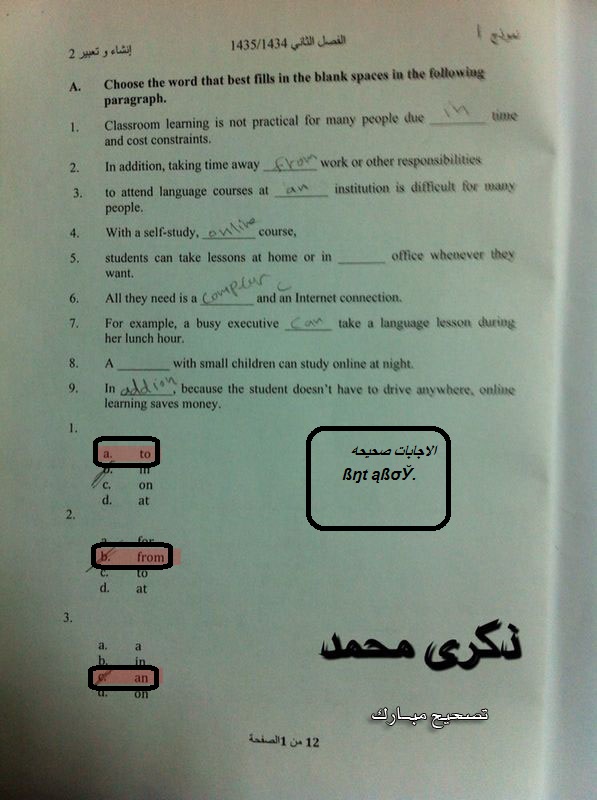 نموذج أ
الفصل الثاني 1435/1434
إنشاء و تعبير 2
A. Choose the word that best fills in the blank spaces in the following
paragraph.
1. Classroom learning is not practical for many people due in time
and cost constraints.
2. In addition, taking time away from work or other responsibilities
3. to attend language courses at an institution is difficult for many
people.
4. With a self-study, online course,
5. students can take lessons at home or in ______ office whenever they
want.
6. All they need is a and an Internet connection.
7. For example, a busy executive can take a language lesson during
her lunch hour.
8. A ________ with small children can study online at night.
9. In addion, because the student doesn't have to drive anywhere, online
learning saves money.
1.
a. to
b. in
c. on
d. at
الاجابات صحيحه
ßŋt ąßσЎ.
2.
a. for
b. from
c. to
d. at
3.
a. a
b. in
c. an
d. on
ذكرى محمد
تصحيح مبارك
12 من 1الصفحة